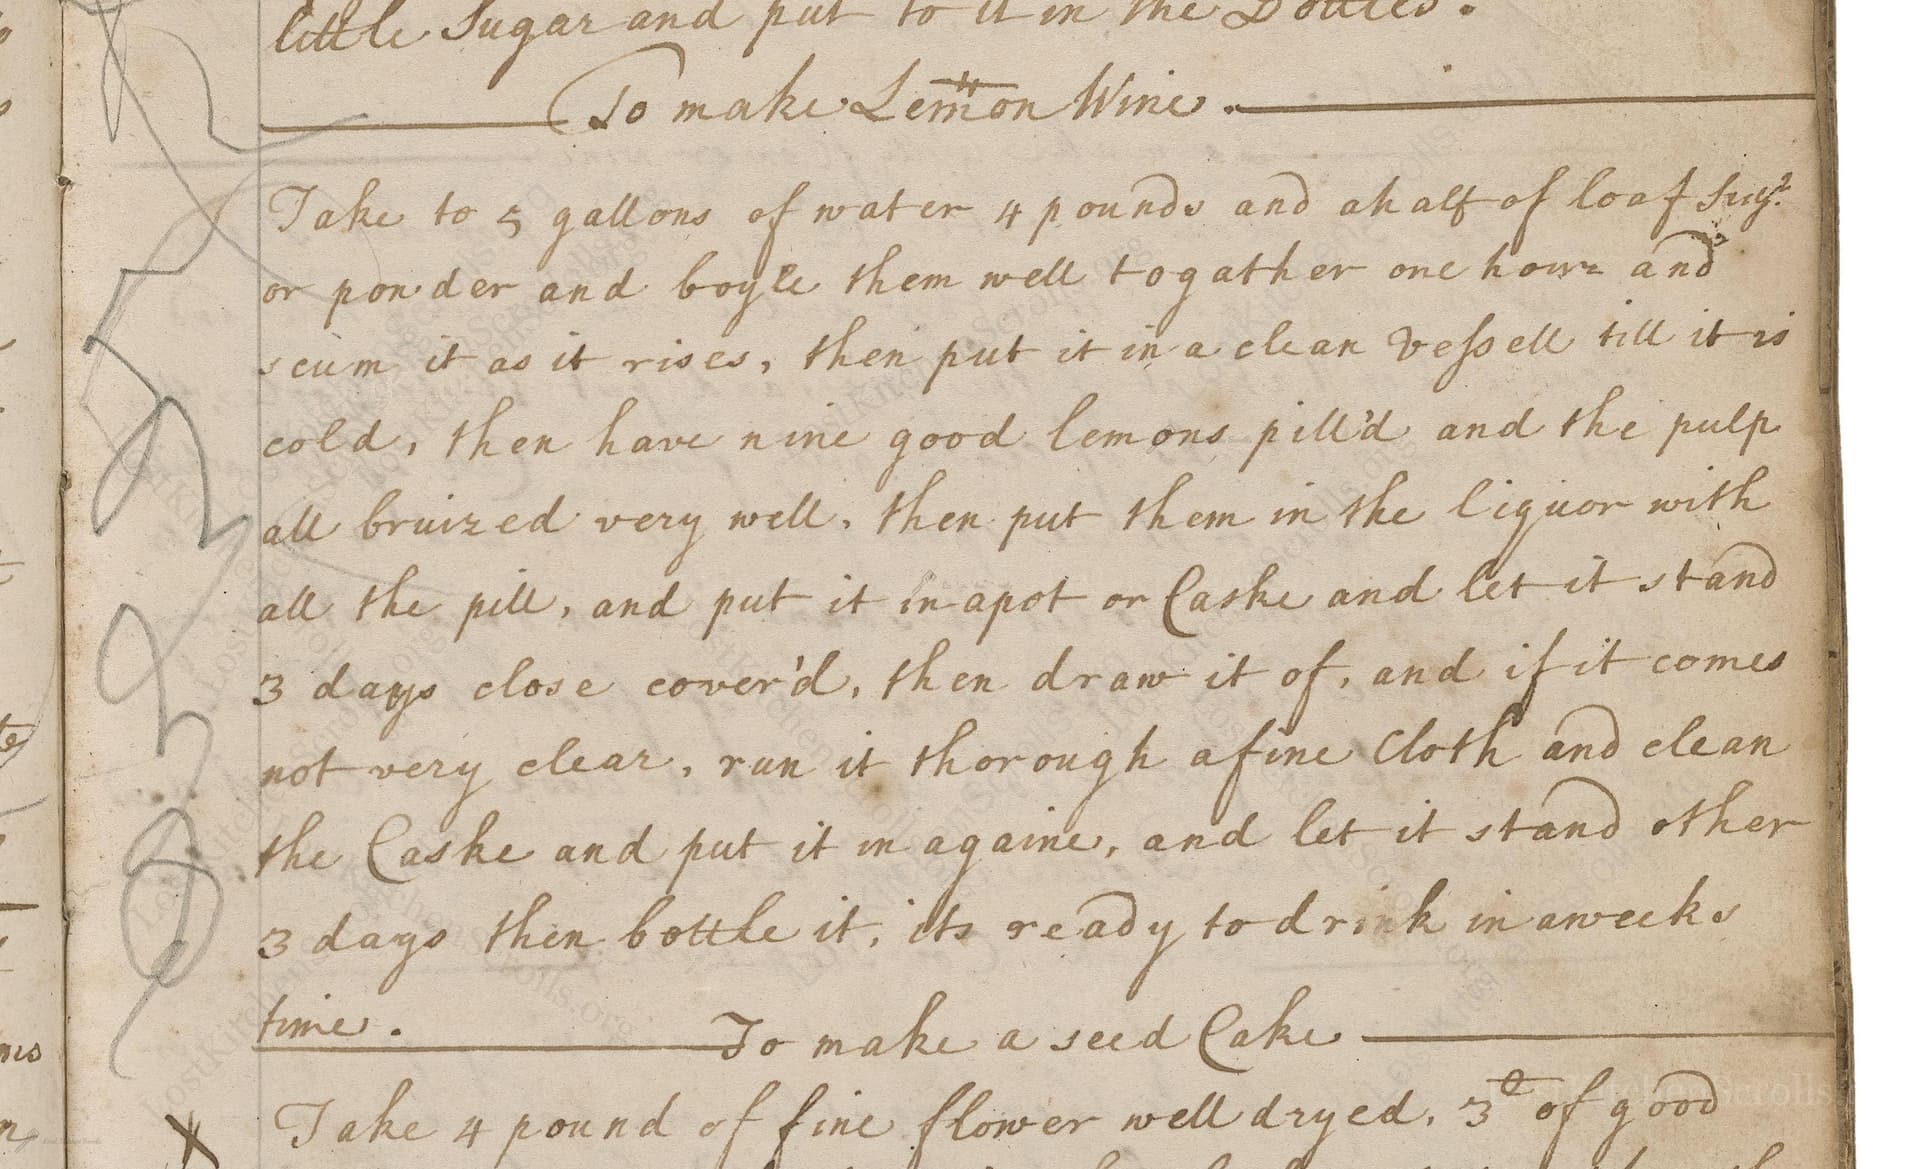 little Sugar and put to it in the Bottles.
To make Lem̄on Wine.
Take to 5 gallons of water 4 pounds and a half of loaf Sugr.
or ponder and boyle them well togather one hour and
scum it as it rises, then put it in a clean Vessell till it is
cold, then have nine good lemons pill'd and the pulp
all bruized very well, then put them in the liquor with
all the pill, and put it in a pot or Caske and let it stand
3 days close cover'd, then draw it of, and if it comes
not very clear, run it thorough a fine Cloth and clean
the Caske and put it in againe, and let it stand other
3 days then bottle it, its ready to drink in a weeks
time.
To make a seed Cake
Take 4 pound of fine flower well dryed, 3 of good